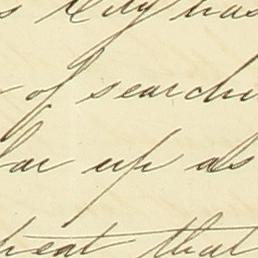 City has
of searchi
far up as
heat that